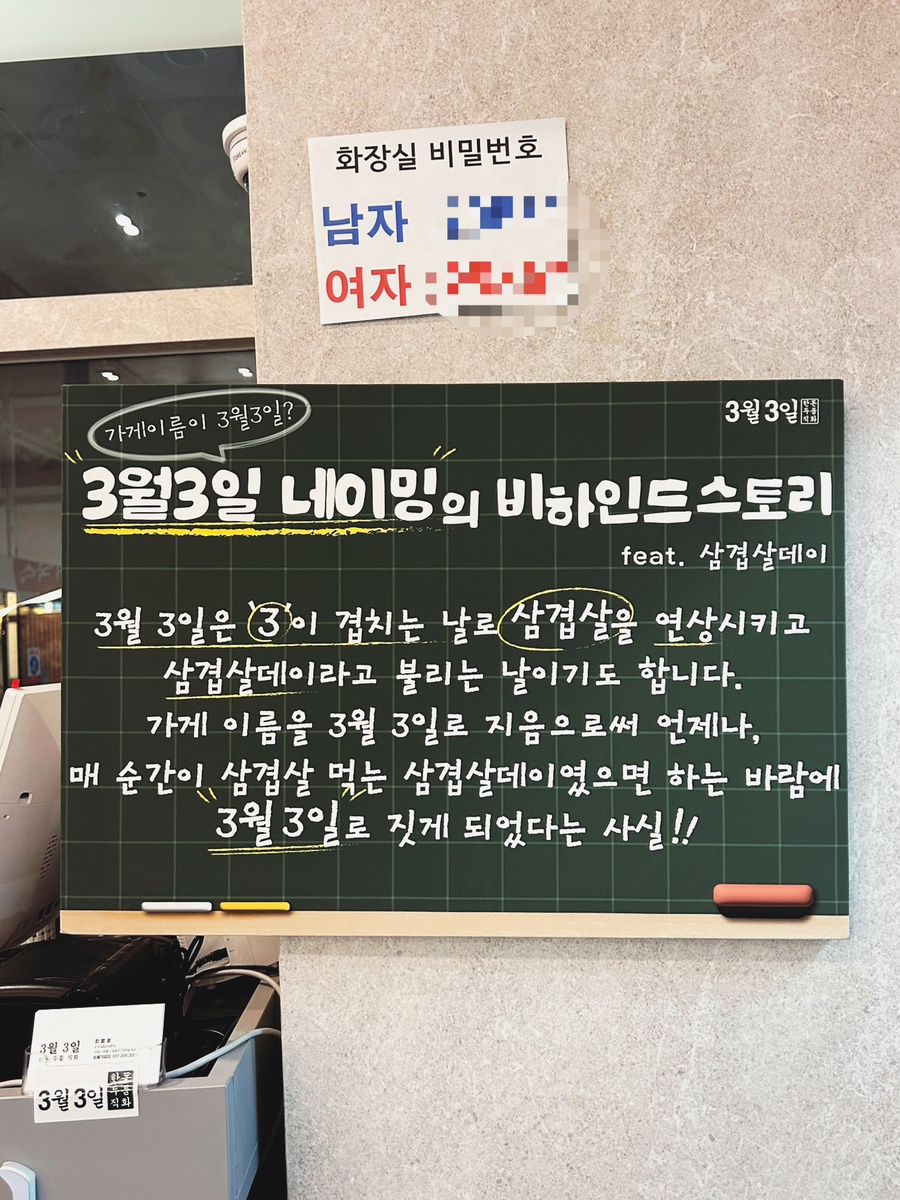 화장실 비밀번호
남자
여자
가게이름이 3월3일?
3월 3일
한돈
두툼
직화
3월3일 네이밍의 비하인드스토리
feat. 삼겹살데이
3월 3일은 3이 겹치는 날로 삼겹살을 연상시키고
삼겹살데이라고 불리는 날이기도 합니다.
가게 이름을 3월 3일로 지음으로써 언제나,
매 순간이 삼겹살 먹는 삼겹살데이였으면 하는 바람에
3월 3일로 짓게 되었다는 사실!!
3월 3일
한돈 두툼 직화
3월 3일
한돈
두툼
직화